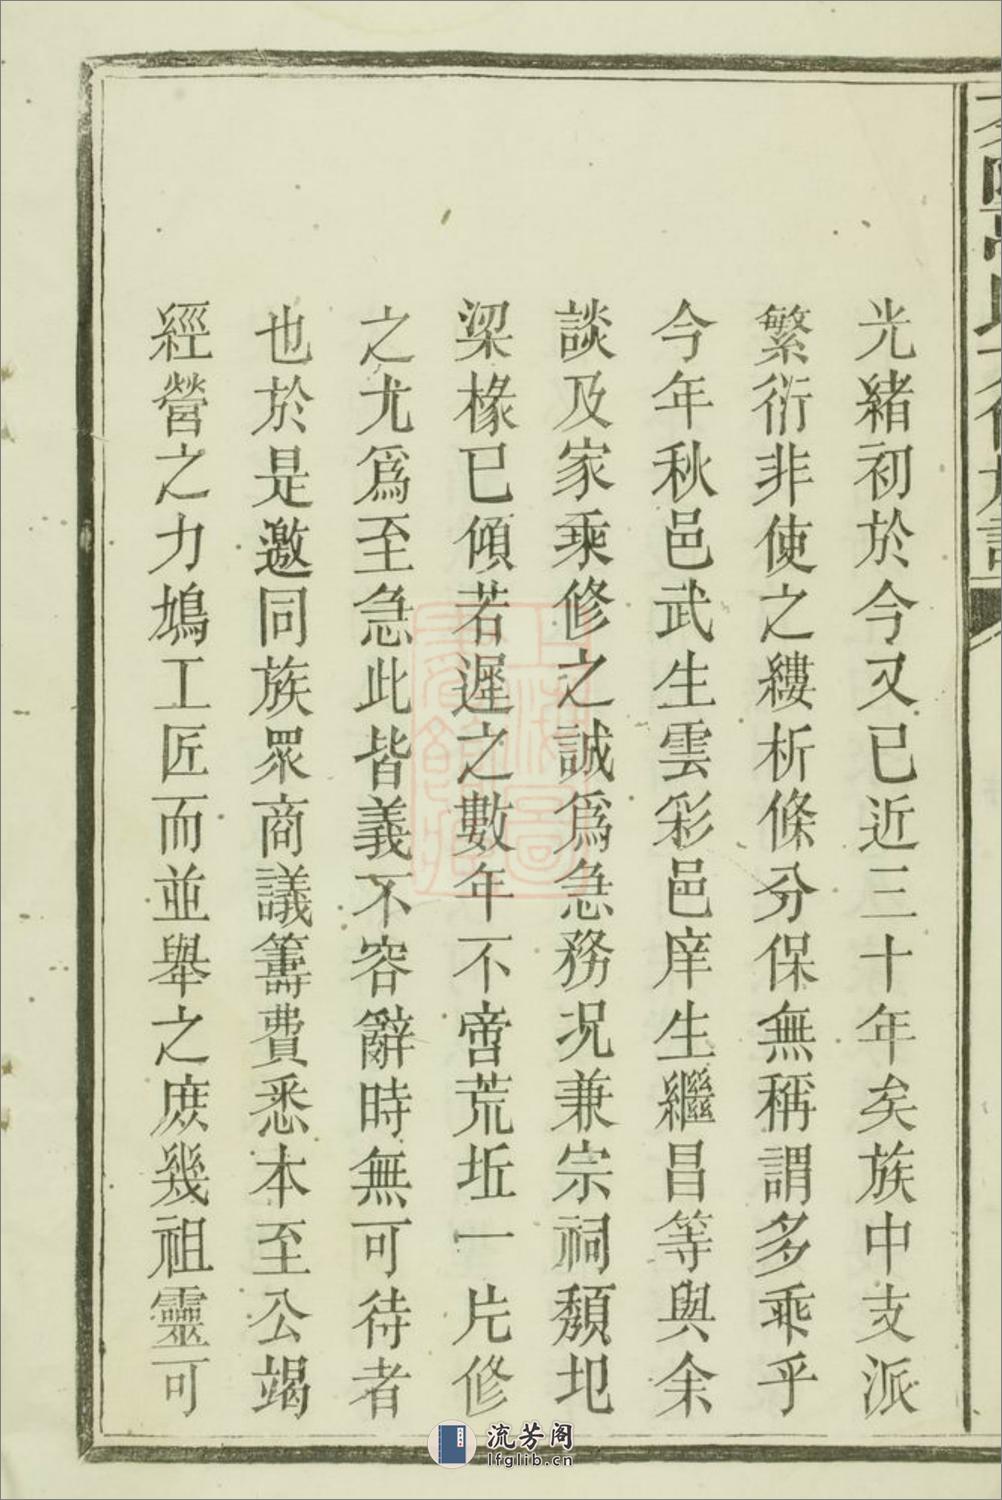 光緒初於今又已近三十年矣族中支派
繁衍非使之縷析條分保無稱謂多乖乎
今年秋邑武生雲彩邑庠生繼昌等與余
談及家乘修之誠為急務况兼宗祠頹圮
梁椽已傾若遲之數年不啻荒坵一片修
之尤為至急此皆義不容辭時無可待者
也於是邀同族眾商議籌費悉本至公竭
經營之力鳩工匠而並舉之庶幾祖靈可
流芳阁
lfglib.cn